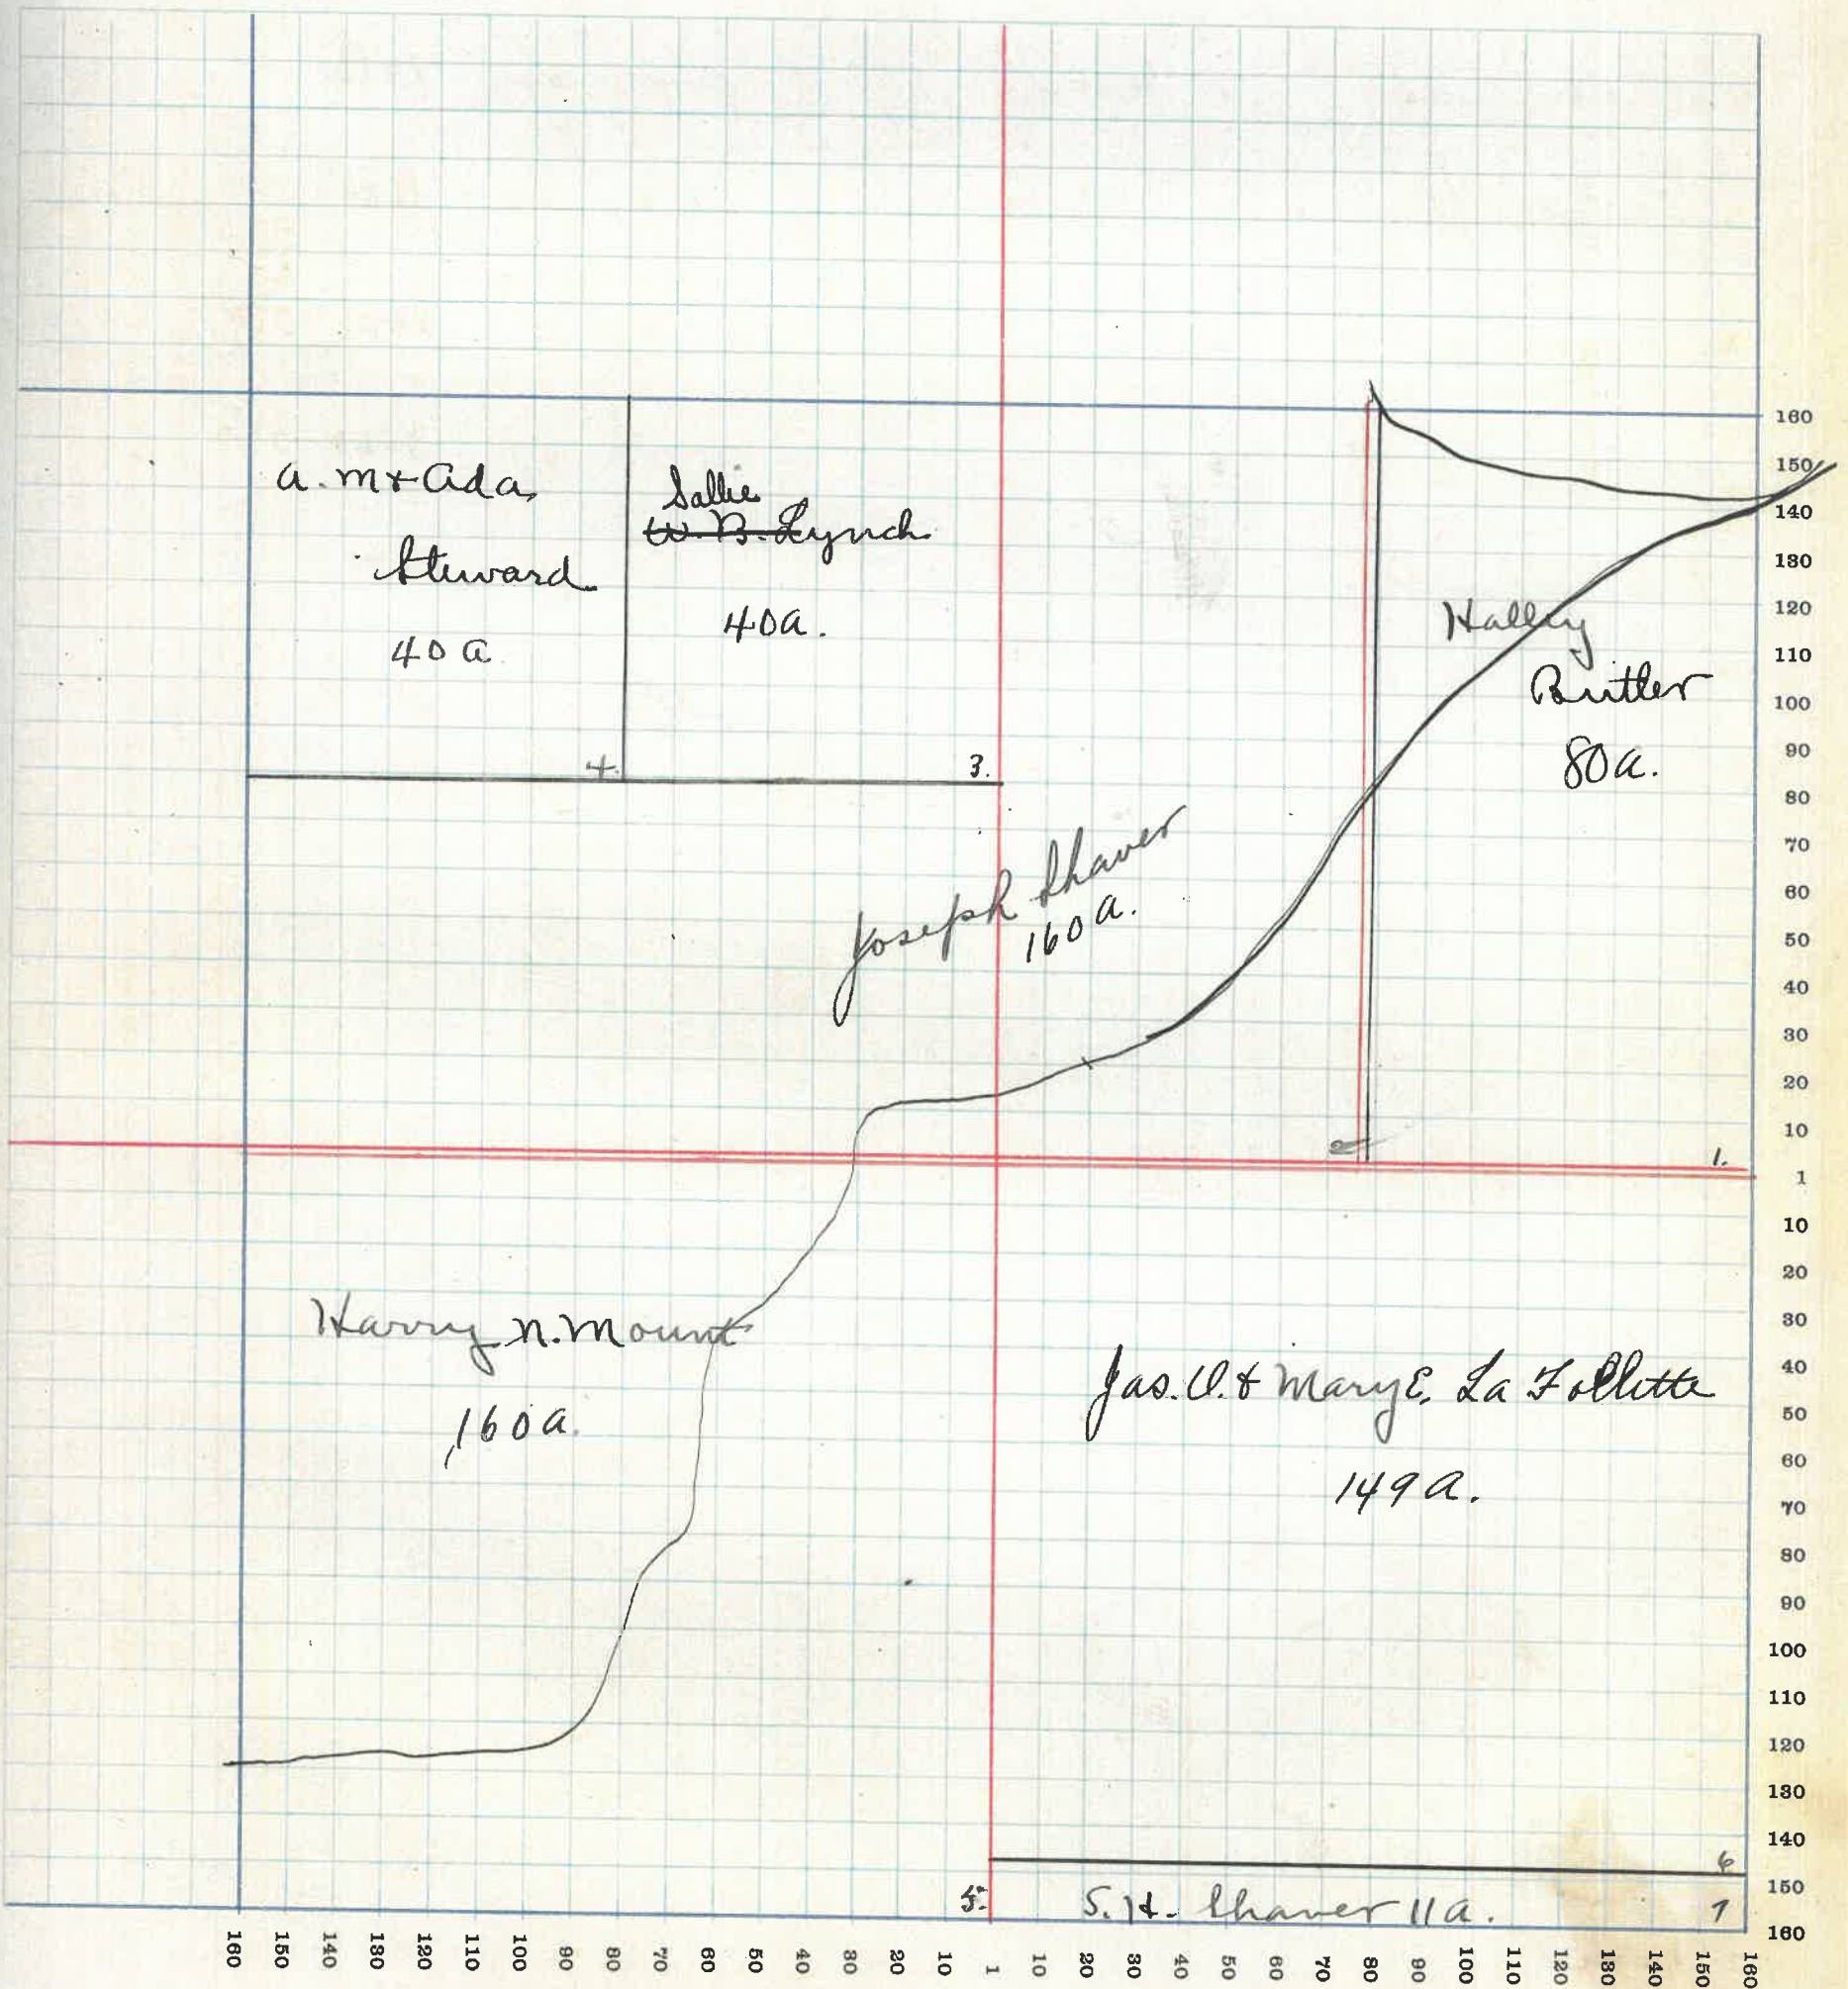 A. M & Ada
Steward
40 A
4.
Sallie
W. B. Lynch
40A.
3.
Halley
Butler
80A.
Joseph Shaver
160A.
1.
Harry N. Mount
160A.
Jas. O. & Mary E. La Follette
149 A.
6
5.
S. H. Shaver 11A.
7
160
150
140
130
120
110
100
90
80
70
60
50
40
30
20
10
1
10
20
30
40
50
60
70
80
90
100
110
120
130
140
150
160
160 150 140 130 120 110 100 90 80 70 60 50 40 30 20 10 1 10 20 30 40 50 60 70 80 90 100 110 120 130 140 150 160